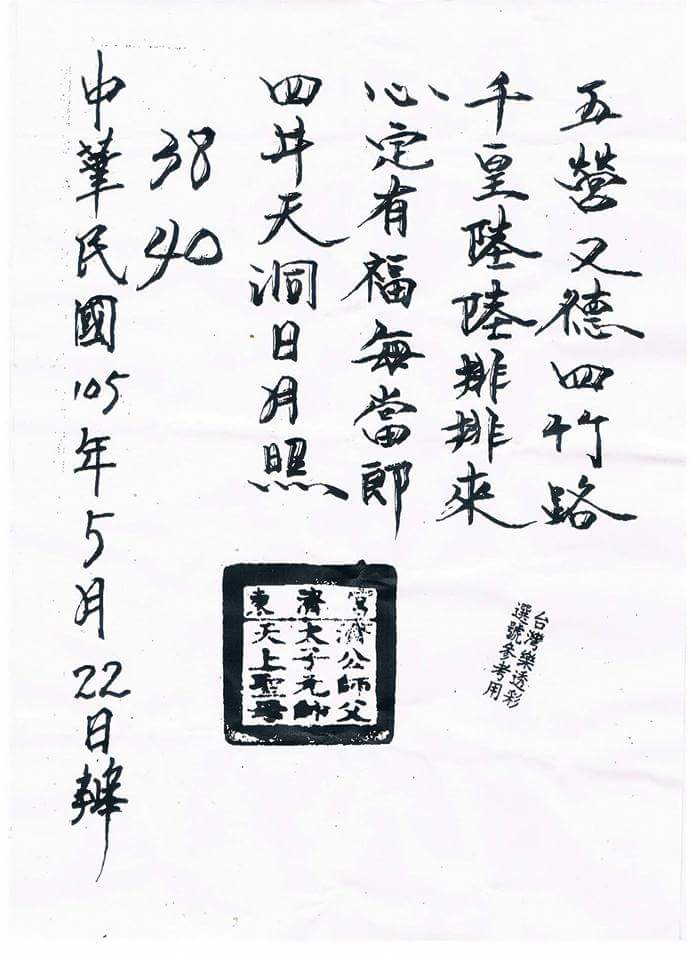 五營又德四竹路
千皇陸陸排排來
心定有福每當郎
四井天洞日月照
38 40
中華民國105年5月22日
東濟宮
濟公師父
太子元帥
天上聖母
台灣樂透彩
選號參考用